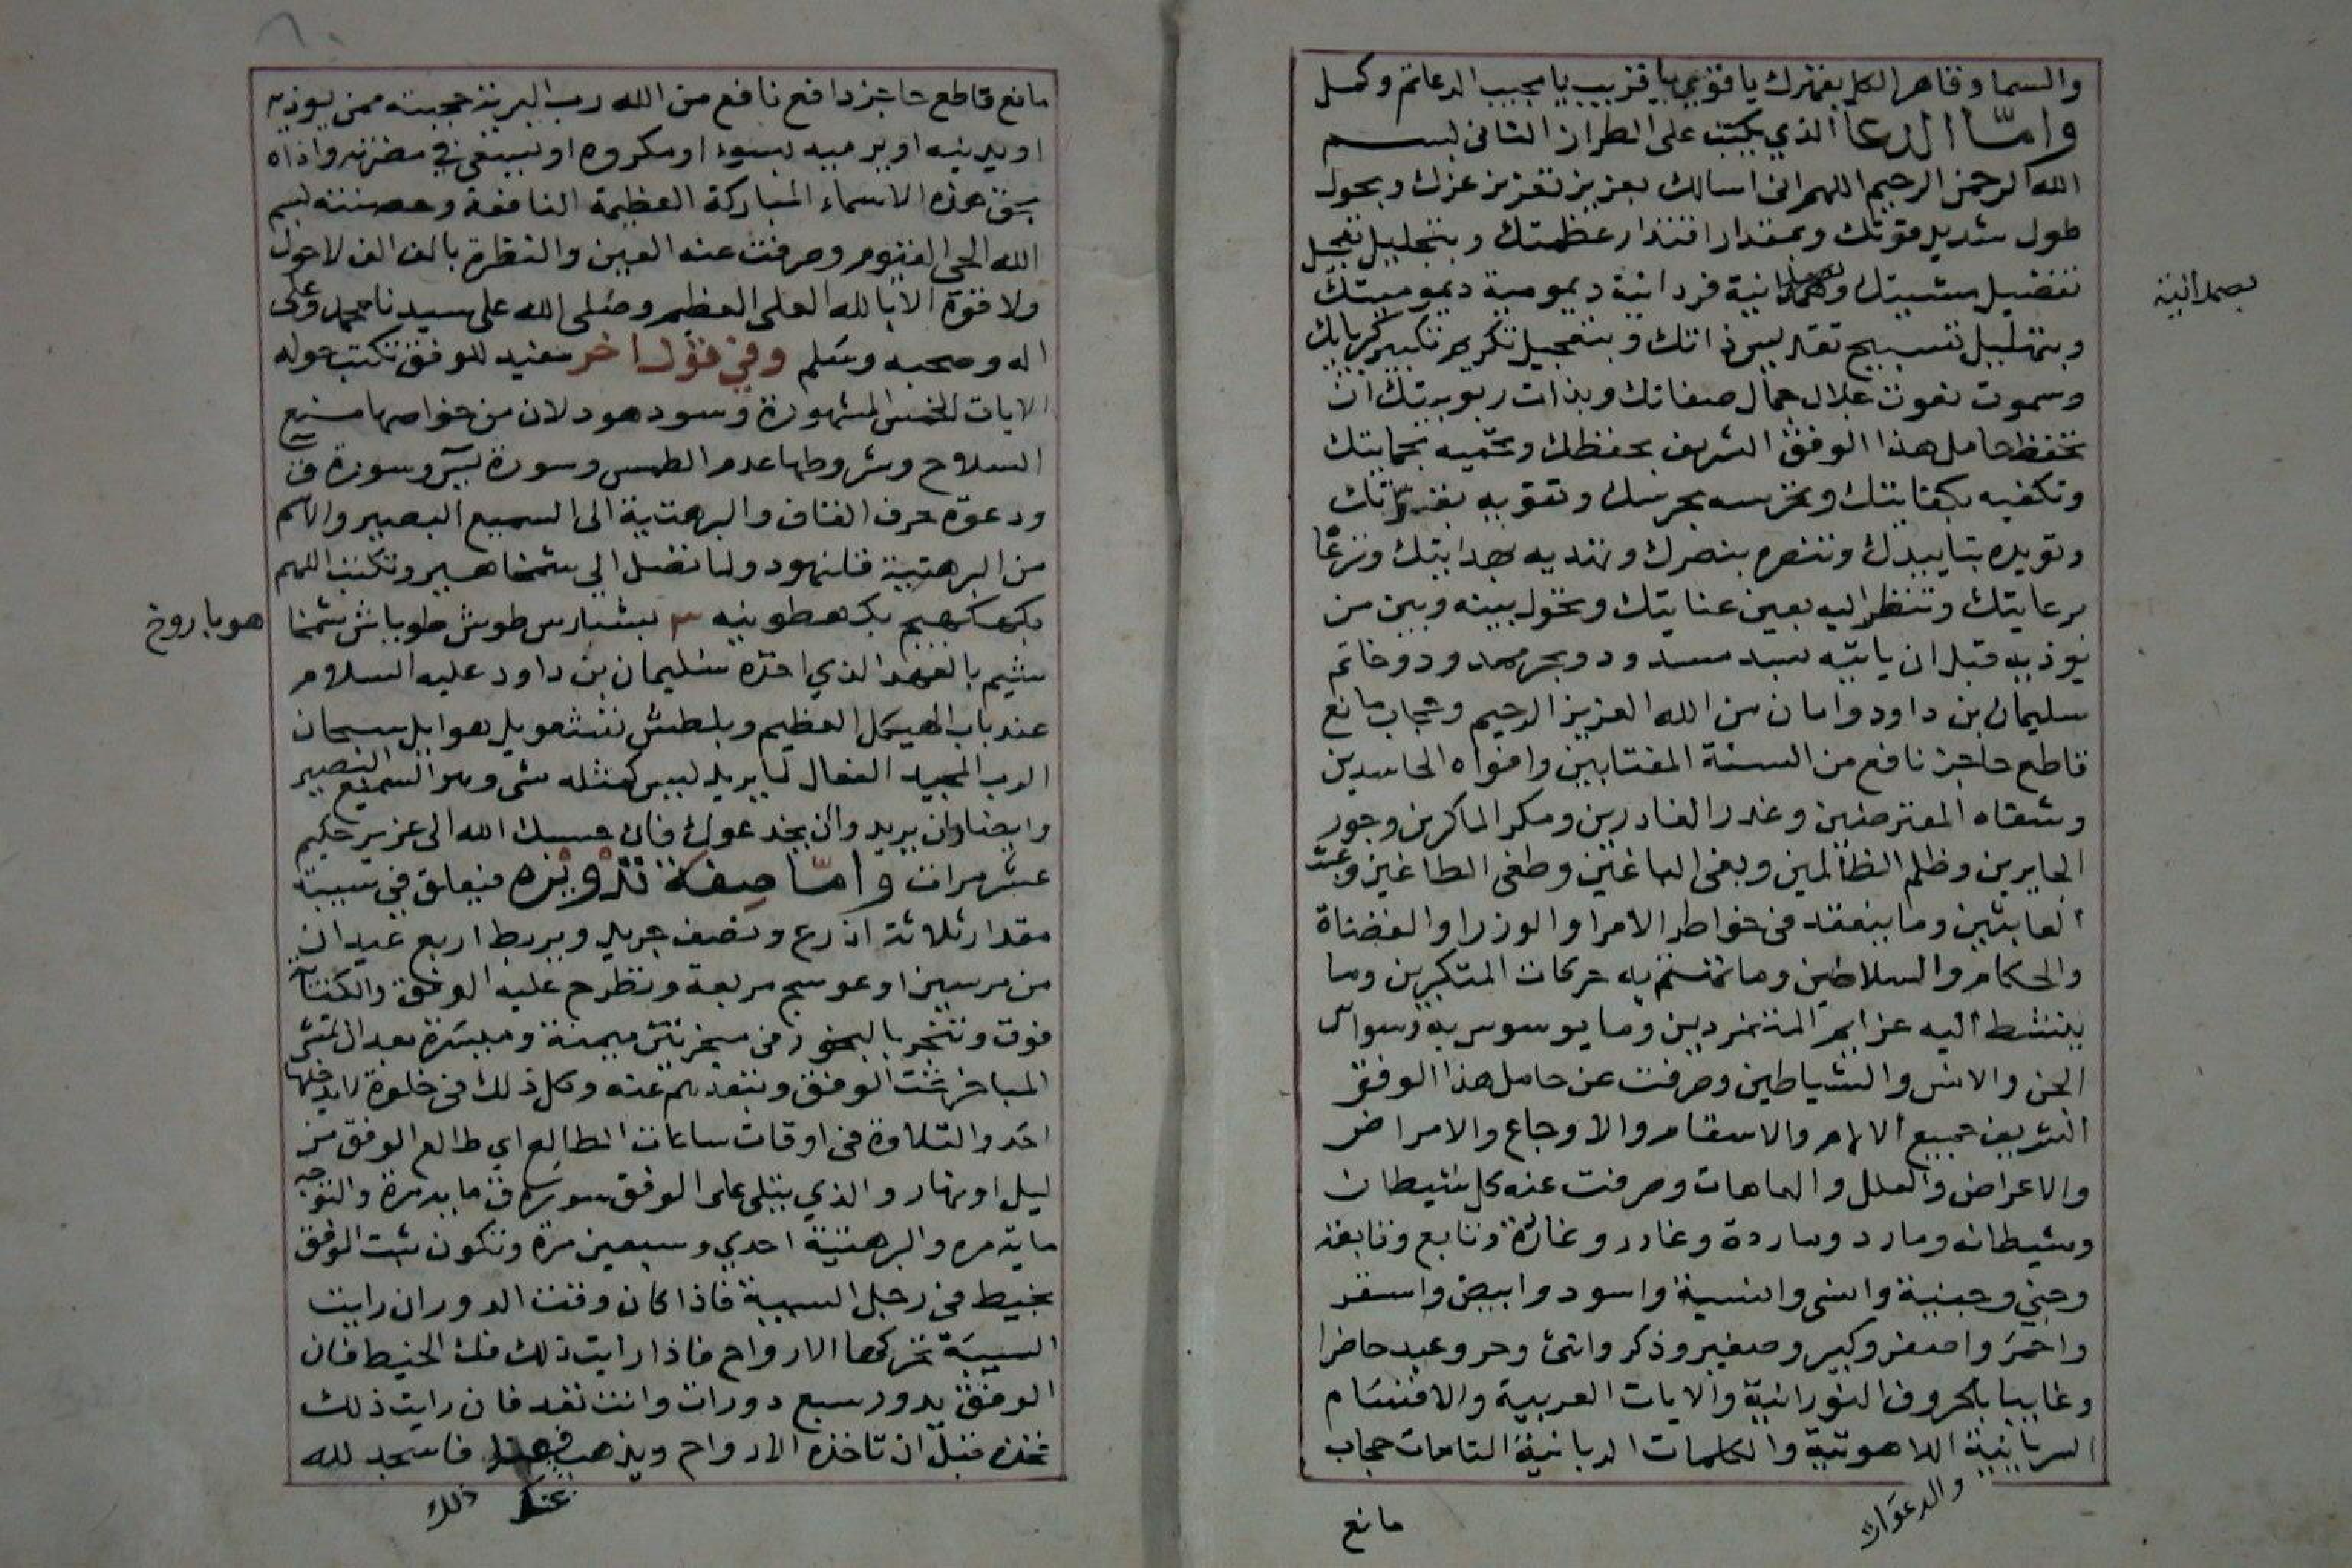 والسما وقاهر الكل بقهرك يا قوي يا قريب يا مجيب الدعا تم وكمل
وامّا الدعا الذي يكتب على الطراز الثاني بسم
الله الرحمن الرحيم اللهم اني اسالك بعزيز تعزيز عزك وبحول
طول شديد قوتك وبمقدار اقتدار عظمتك وبتجليل
تفضيل مشيتك فردانية ديمومية ديموميتك
بصمدانية
وبتهليل تسبيح تقديس ذاتك وبتعجيل تكريم تكبير كبريايك
وسموت نعوت جلال جمال صفاتك وبذات ربوبيتك ان
تحفظ حامل هذا الوفق الشريف بحفظك وتحميه بحمايتك
وتكفيه بكفايتك وتحرسه بحرسك وتقويه بقوّتك
وتويده بتاييدك وتنصره بنصرك وتهديه بهدايتك وترعا
برعايتك وتنظر اليه بعين عنايتك وتحول بينه وبين من
يوذيه قبل ان ياتيه بسد مسدود وبحر محدود وخاتم
سليمان بن داود وامان من الله العزيز الرحيم وحجاب مانع
قاطع حاجز نافع من السنة المغتابين وافواه الحاسدين
وشفاه المعترضين وغدر الغادرين ومكر الماكرين وجور
الجايرين وظلم الظالمين وبغي الباغين وطغي الطاغين وعبث
العابثين وما ينعقد في خواطر الامرا والوزرا والقضاة
والحكام والسلاطين وما تمتم به حركات المتكبرين وما
ينشط اليه عزايم المتمردين وما يوسوس به وسواس
الجن والانس والشياطين وصرفت عن حامل هذا الوفق
الشريف جميع الالام والاسقام والاوجاع والامراض
والاعراض والعلل والعاهات وصرفت عنه كل شيطان
وشيطانه ومارد وماردة وغادر وغادرة وتابع وتابعة
وجني وجنية وانسي وانسية واسود وابيض واسفر
واحمر واصفر وكبير وصغير وذكر وانثى وحر وعبد حاضرا
وغايبا بالحروف النورانية والايات العربية والاقسام
السريانية اللاهوتية والكلمات الربانية التامات حجاب
والدعوات
مانع
مانع قاطع حاجز دافع نافع من الله رب البرية حجبته ممن يوذيه
او يدنيه او يرميه بسوء او مكروه او يسعى في مضرته واذاه
بحق هذه الاسماء المباركة العظيمة النافعة وحصنته بسم
الله الحي القيوم وصرفت عنه العين والنظرة بالف الف لا حول
ولا قوة الا بالله العلي العظيم وصلى الله على سيدنا محمد وعلى
اله وصحبه وسلم وفي قول اخر مفيد للوفق تكتب حوله
الايات الخمس المشهورة وسود هود لان من خواصها منع
السلاح وشروطها عدم الطمس وسورة يس وسورة ق
ودعوة حرف القاف والبرهتية الى السميع البصير والاسم
من البرهتية فلنهود ولنا تصل الى شمخاهير وتكتب اللهم
بكهكهيج بكهطونيه ٣ بشارس طوش طوباش شمخا
هو باروخ
شيم بالعهد الذي اخذه سليمان بن داود عليه السلام
عند باب الهيكل العظيم وبلطش نششعويل هوايل سبحان
الرب المجيد الفعال لما يريد ليس كمثله شي وهو السميع البصير
وايضا وان يريدوا ان يخدعوك فان حسبك الله الى عزيز حكيم
عشر مرات وامّا صفة تدويره فيعلق في سيبة
مقدار ثلاثة اذرع ونصف جريد ويربط اربع عيدان
من مرسين او عوسج مربعة وتطرح عليه الوفق والكتاب
فوق وتبخر بالبخور في مبخرتين ميمنة وميسرة بعد ان تمشي
المباخر تحت الوفق وتبعدهم عنه وكل ذلك في خلوة لا يدخلها
احد والتلاوة في اوقات ساعات الطالع اي طالع الوفق من
ليل او نهار والذي يتلى على الوفق سورة ق ماية مرة والتوجه
ماية مره والبرهتية احدي وسبعين مرة وتكون ثبت الوفق
بخيط في رجل السيبة فاذا كان وقت الدوران رايت
السيبة تحركها الارواح فاذا رايت ذلك فك الخيط فان
الوفق يدور سبع دورات وانت تعد فان رايت ذلك
فخذه قبل ان تاخذه الارواح ويذهب فاسجد لله
عند ذلك